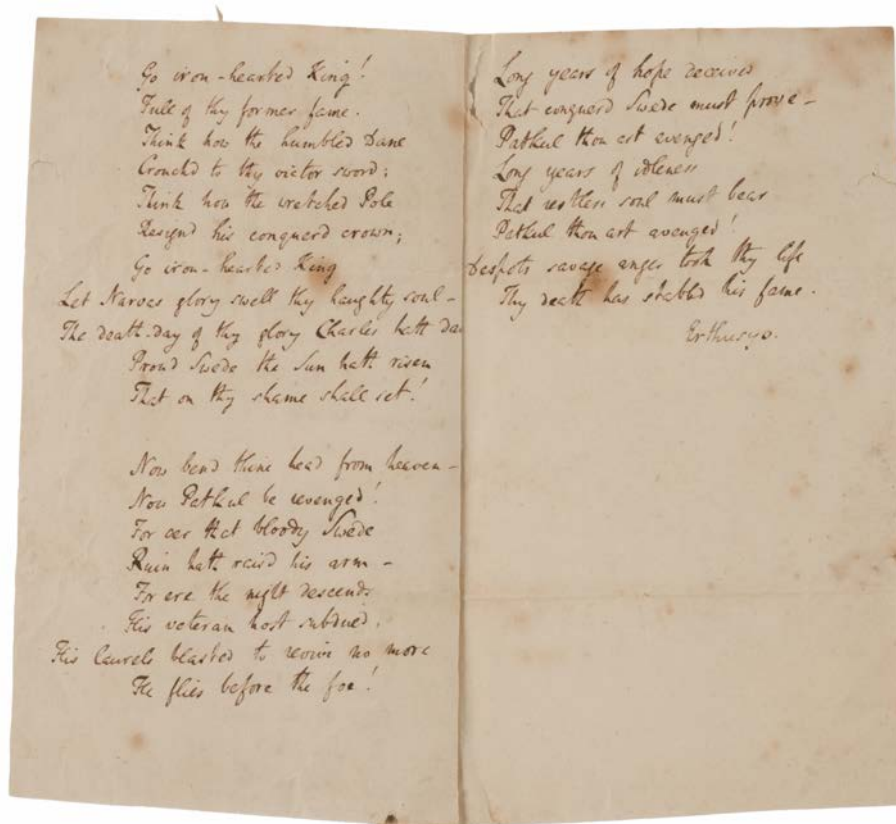 Go iron-hearted King!
Full of thy former fame.
Think how the humbled Dane
Crouchd to thy victor sword;
Think how the wretched Pole
Resignd his conquerd crown;
Go iron-hearted King
Let Narvas glory swell thy haughty soul -
The death-day of thy glory Charles hath
Proud Swede the Sun hath risen
That on thy shame shall set!
Now bend thine head from heaven -
Now Patkul be revenged!
For oer that bloody Swede
Ruin hath raisd his arm -
For ere the night descends
His veteran host subdued,
His laurels blasted to revive no more
He flies before the foe!
Long years of hope deceived
That conquerd Swede must prove -
Patkul thou art avenged!
Long years of idleness
That restless soul must bear
Patkul thou art avenged!
Despots savage anger took thy life
Thy death has stabbd his fame.
Erthusyo.